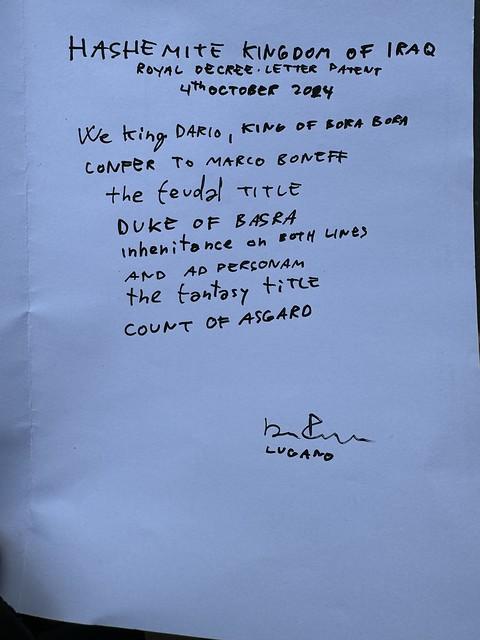 HASHEMITE KINGDOM OF IRAQ
ROYAL DECREE. LETTER PATENT
4th OCTOBER 2024
We king DARIO, KING OF BORA BORA
CONFER TO MARCO BONEFF
the feudal TITLE
DUKE OF BASRA
inhenitance on BOTH LINES
AND AD PERSONAM
the fantasy tiTLE
COUNT OF ASGARD
LUGANO